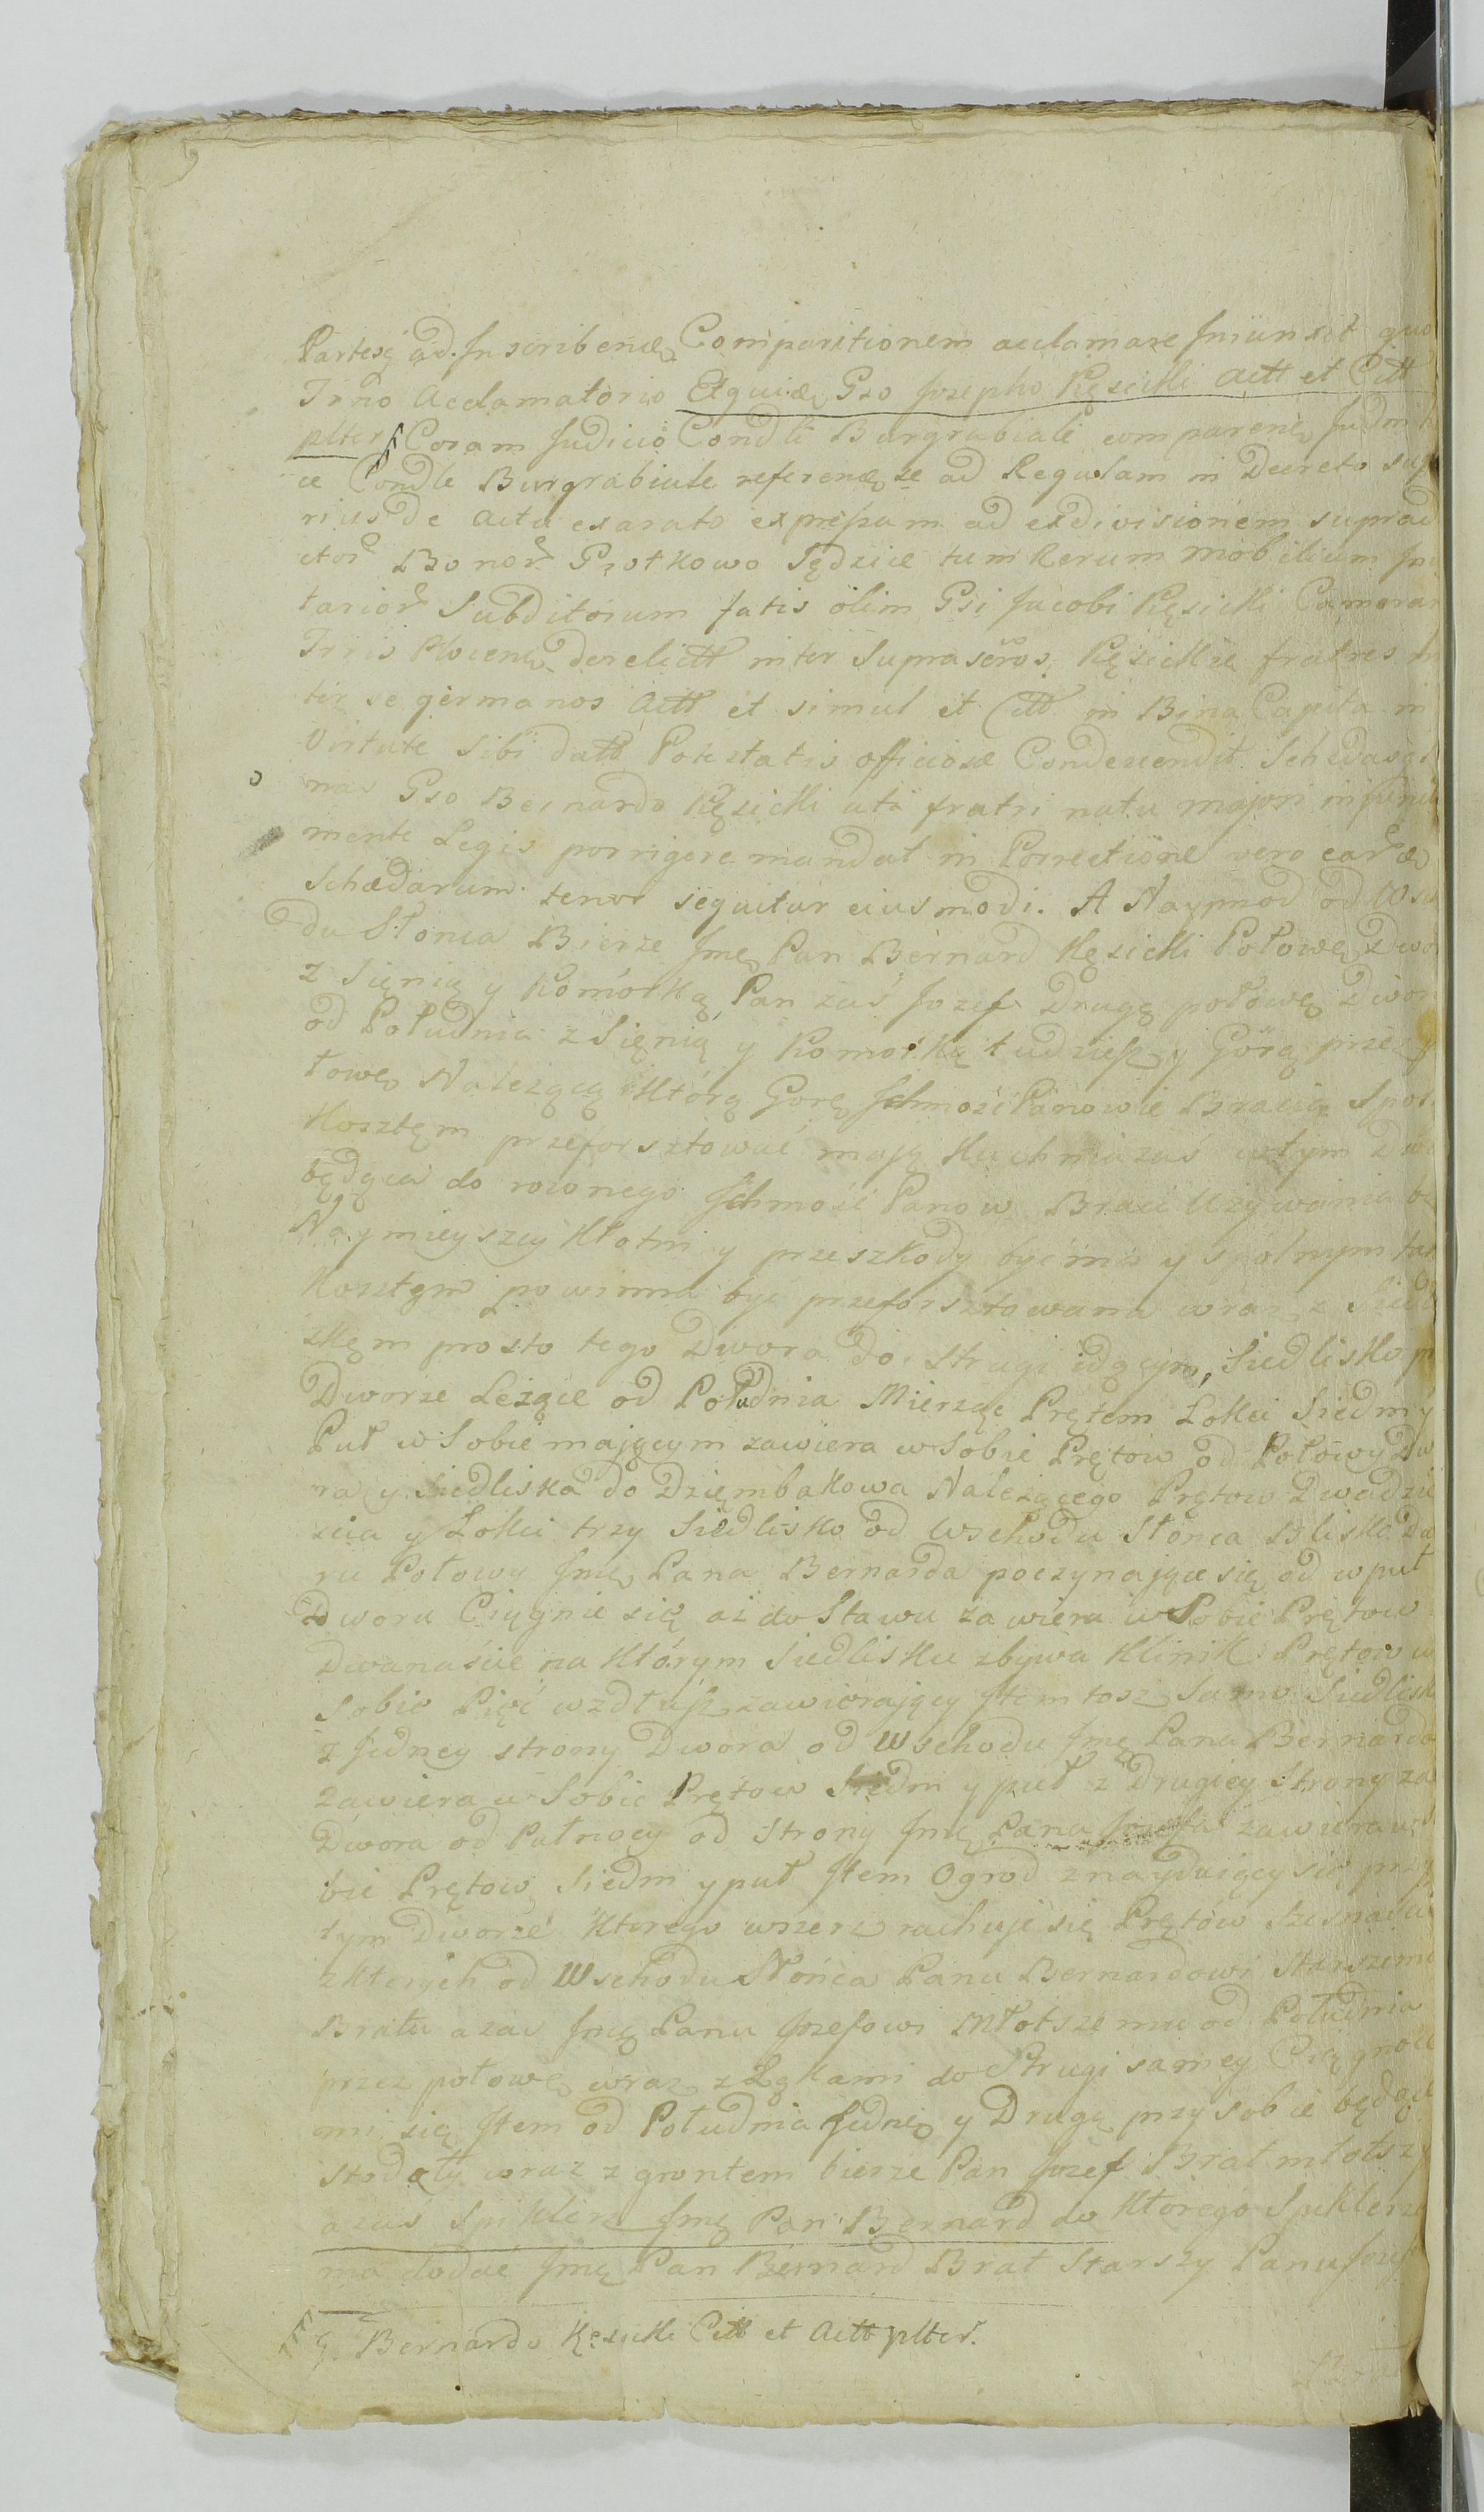 Partesq ad Inscribenđ Comparitionem acclamare Iniunxit quo
Irño Acclamatorio Etquidē Gso Josepho Kęsicki Actt et Citt
plter Coram Judicio Condli Burgrabiali comparenē Judm h
ce Condle Burgrabiale referendo se ad Regulam in Decreto sup
rius de actu exarato expressam ad exdivisionem suprad
ctor Bonor Grotkowo Sędzice tum Rerum mobilium
tarior Subditorum fatis olim Gsi Jacobi Kęsicki Camerar
Trris Plocens derelictt inter Suprascros Kęsickie fratres in
ter se germanos Actt et simul et Citt in Bina Capita in
Virtute Sibi datt Potestatis officiosæ Condescendit Schedasq
nas Gso Bernardo Kęsicki uti fratri natu majori insinu
mente Legis porrigere mandat in Porrectione vero earū
Schedarum tenor sequitur eiusmodi. A Nayprzod od Wscho
du Słonca Bierze Jmę Pan Bernard Kęsicki Połowę Dwor
z Sienią y Komorką Pan zaś Jozef Drugą połowę Dwor
od Południa z Sienią y Komorką tudziesz y Górą przez p
łowę Należącą Którą Gorę Ichmość Panowie Bracia Spol
Kosztęm przeforsztować mają Kuchnia zaś w tym Dwo
będąca do rownego Ichmość Panow Braci Używania be
Naymieyszey Kłotni y przeszkody być ma y spolnym tak
Kosztęm powinna być przeforsztowana wraz z Siedli
skęm prosto tego Dwora do Strugi idącym, Siedlisko p
Dworze Leżące od Południa Mierząc Prętem Łokci Siedm y
Puł w Sobie mającym zawiera w Sobie Prętow od Połowy Dw
ra y Siedliska do Dzięmbakowa Należącego Prętow Dwadzie
scia y Łokci trzy Siedlisko od Wschodu Słonca Blisko Dw
ru Połowy Jmę Pana Bernarda poczynające się od w puł
Dworu Ciągnie się aż do Stawu zawiera w Sobie Prętow
Dwanascie na Którym Siedlisku zbywa Klinik Prętow w
Sobie Pięć wzdłusz zawierający Item tosz Samo Siedlisk
z Jedney strony Dwora od Wschodu Jmę Pana Bernarda
zawiera w Sobie Prętow Siedm y puł z Drugiey Strony za
Dwora od Pułnocy od Strony Jmę Pana Jozefa zawiera w S
bie Prętow Siedm y puł Item Ogrod znayduiący się przy
tym Dworze Ktorego wszerz rachuje się Prętow Szesnaści
z Ktorych od Wschodu Słońca Panu Bernardowi Starszemu
Bratu a zaś Jmę Panu Jozefowi Młotszemu od Południa
przez połowę wraz z Łąkami do Strugi samey Ciągnoce
mi się Item od Południa Jednę y Drugą przy sobie będące
stodoły wraz z grontem bierze Pan Jozef Brat młotszy
a zaś Spiklerz Jmę Pan Bernard do Ktorego Spiklerza
ma dodać Jmę Pan Bernard Brat Starszy Panu Jozef
G. Bernardo Kęsicki Citt et Actt plter.